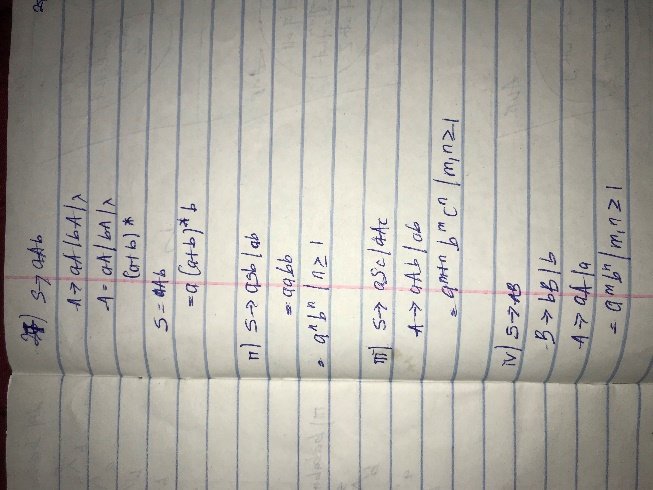 i) S → aAb
A → aA | bA | λ
A = aA | bA | λ
(a+b)*
S = aAb
= a (a+b)* b
ii) S → aSb | ab
= aabb
= aⁿbⁿ | n ≥ 1
iii) S → aSc | aAc
A → aAb | ab
= aᵐ⁺ⁿ bᵐ cⁿ | m,n ≥ 1
iv) S → AB
B → bB | b
A → aA | a
= aᵐbⁿ | m,n ≥ 1